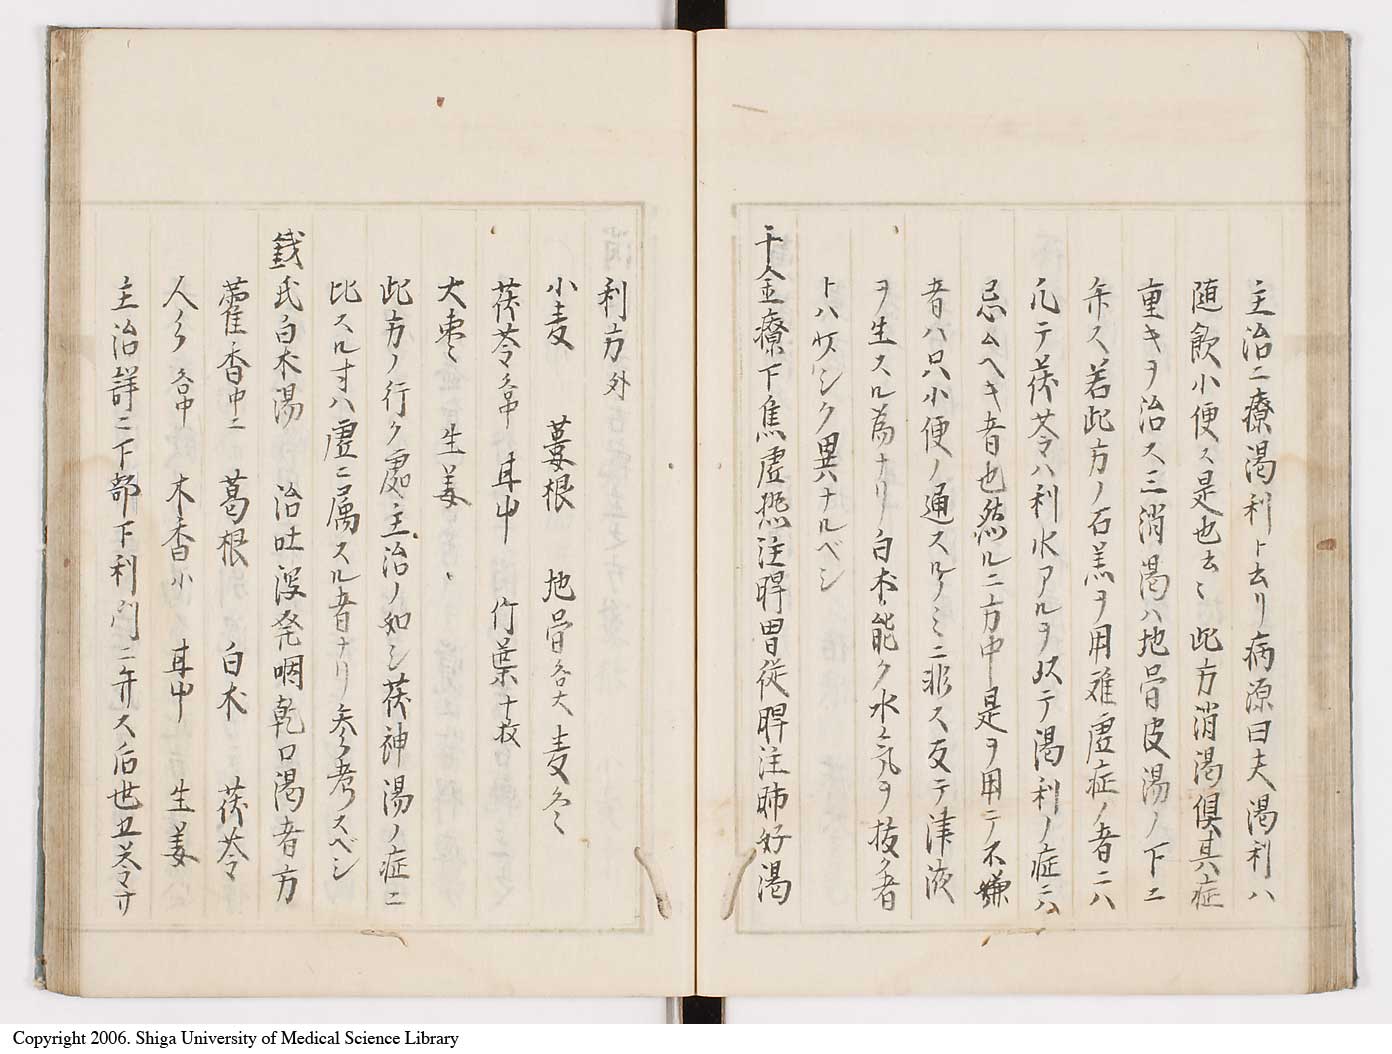 主治ニ療渇利ト云リ病源曰夫渇利ハ
随飲小便ス是也云々此方消渇倶其症
重キヲ治ス三消渇ハ地骨皮湯ノ下ニ
弁ス若此方ノ石羔ヲ用難虚症ノ者ニハ
凡テ茯苓ハ利水アルヲ以テ渇利ノ症ニハ
忌ムヘキ者也然ルニ方中是ヲ用テ不嫌
者ハ只小便ノ通スルノミニ非ス反テ津液
ヲ生スル為ナリ白朮能ク水気ヲ抜者
トハ少シク異ナルベシ
千金療下焦虚熱注脾胃従脾注肺好渇
利方 外
小麦 蔞根 地骨各大 麦冬
茯苓各中 耳中 竹葉十枚
大枣 生姜
此方ノ行ク処主治ノ如シ茯神湯ノ症ニ
比スルオハ虚ニ属スル者ナリ参考スベシ
銭氏白朮湯 治吐瀉発咽乾口渇者方
藿香中ニ 葛根 白朮 茯苓
人参各中 木香小 耳中 生姜
主治詳ニ下部下利門ニ弁ス后世五苓オ
Copyright 2006. Shiga University of Medical Science Library